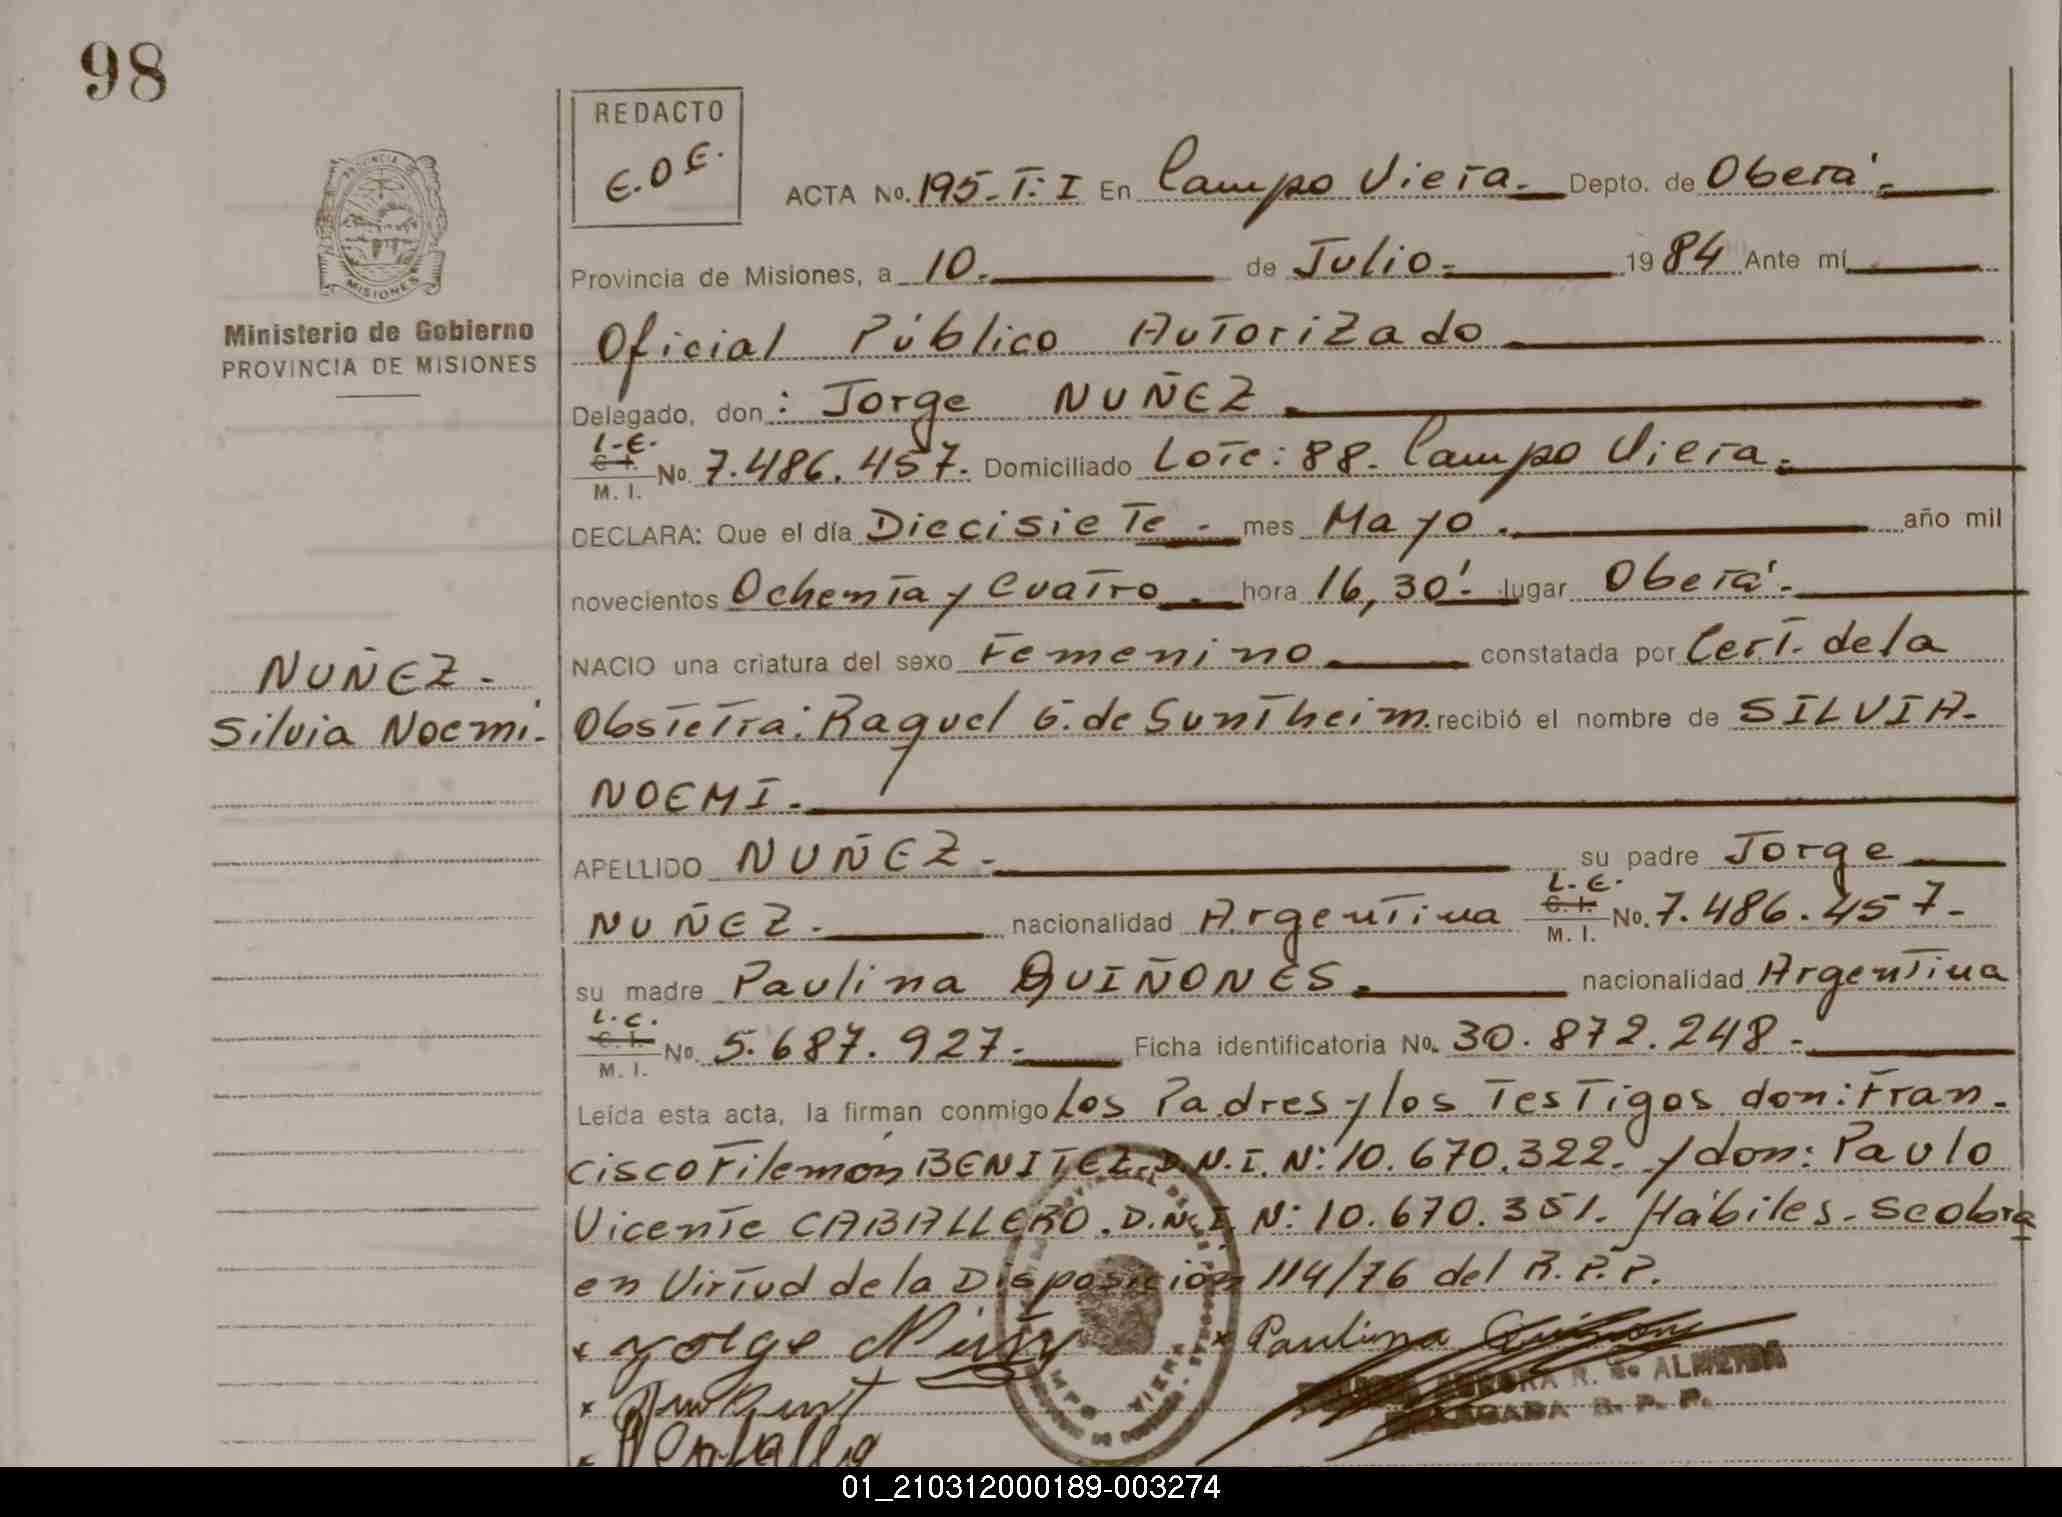 98
REDACTO
E.O.E.
ACTA No. 195-T: I En Campo Viera.- Depto. de Oberá.-
Provincia de Misiones, a 10.- de Julio.- 1984 Ante mí
PROVINCIA DE
MISIONES
Ministerio de Gobierno
PROVINCIA DE MISIONES
Oficial Público Autorizado
Delegado, don: Jorge NUÑEZ
L.E.
C.I.
M. I. No. 7.486.457. Domiciliado Lote: 88. Campo Viera.
DECLARA: Que el día Diecisiete.- mes Mayo.- año mil
novecientos Ochenta y Cuatro.- hora 16,30'.- lugar Oberá.-
NACIO una criatura del sexo Femenino constatada por Cert. de la
NUÑEZ.-
Silvia Noemí.-
Obstetra: Raquel G. de Suntheim recibió el nombre de SILVIA-
NOEMI.-
APELLIDO NUÑEZ.- su padre Jorge
NUÑEZ.- nacionalidad Argentina L.E. C.I. M. I. No. 7.486.457.-
su madre Paulina QUIÑONES.- nacionalidad Argentina
L.C.
C.I.
M. I. No. 5.687.927.- Ficha identificatoria No. 30.872.248.-
Leída esta acta, la firman conmigo los Padres y los Testigos don: Fran-
cisco Filemón BENITEZ. D.N.I. N: 10.670.322. y don: Paulo
Vicente CABALLERO. D.N.I. N: 10.670.351. Hábiles. Se obra
en Virtud de la Disposición 114/76 del R.P.P.
x Jorge Nuñez x Paulina Quiñones
R. de ALMEIDA
DELEGADA R. P. P.
01_210312000189-003274